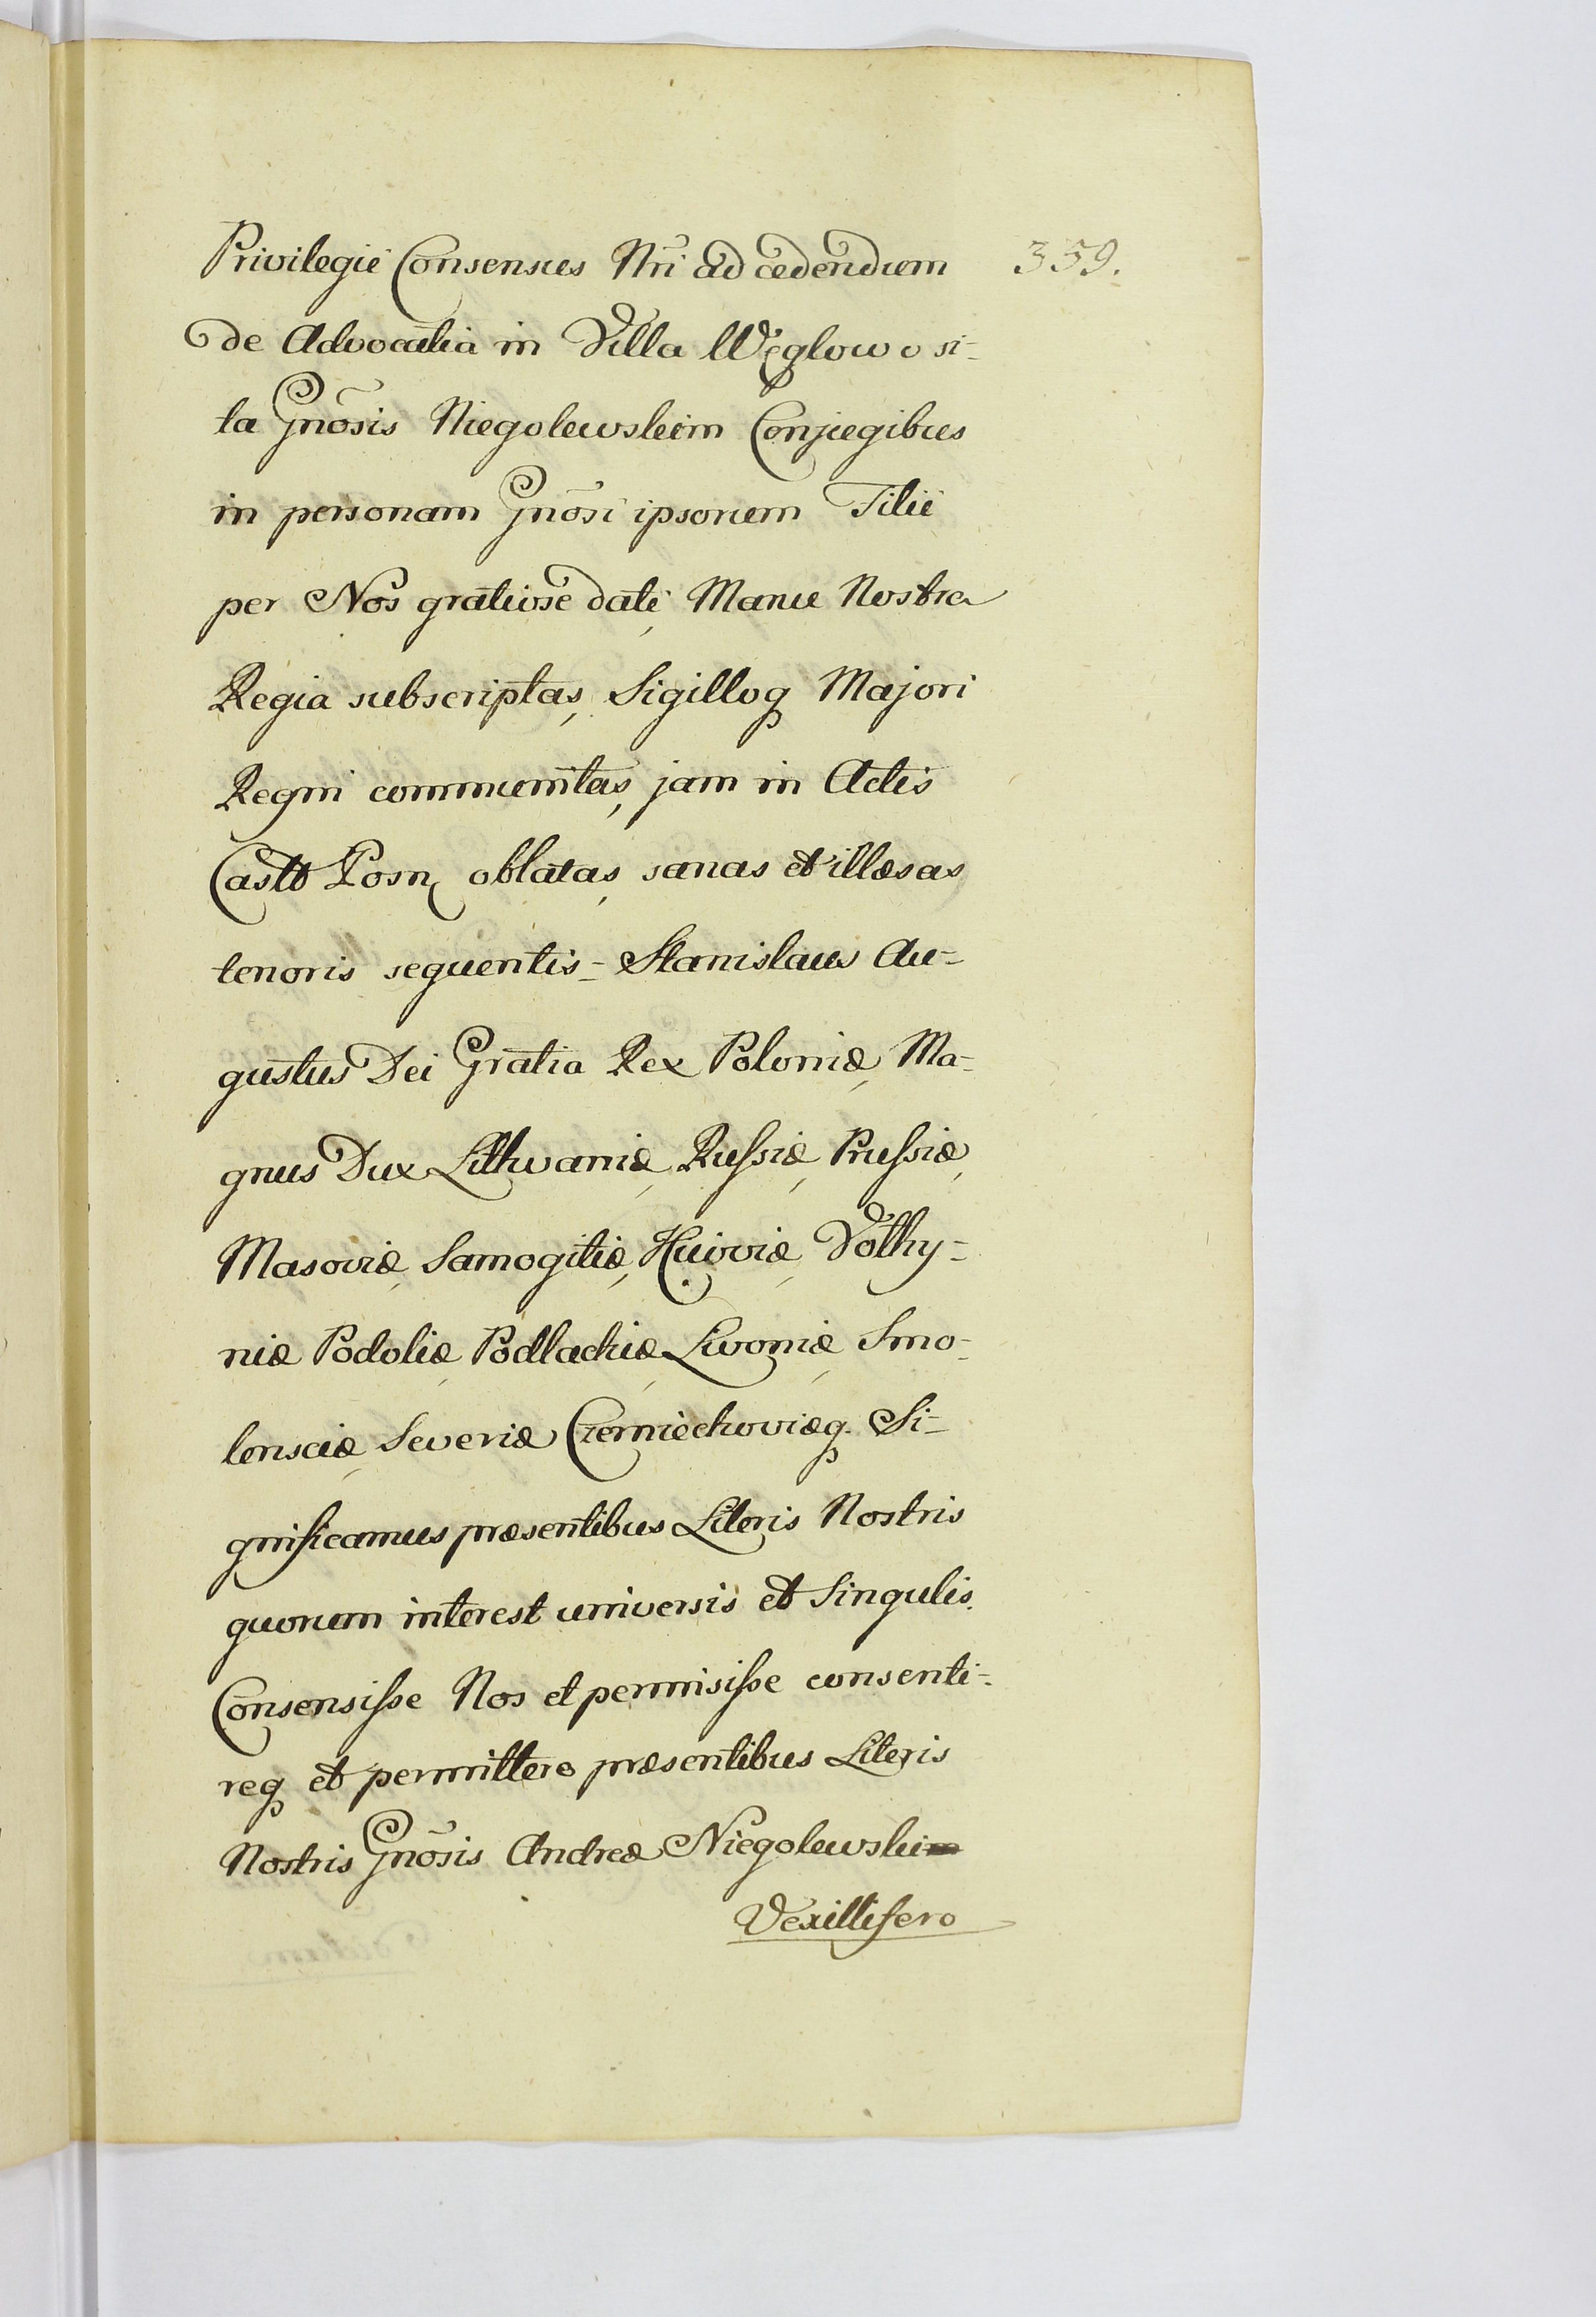 Privilegii Consensus Nri ad cedendum 359.
de Advocatia in Villa Węglowo si-
ta Gnosis Niegolewskim Conjugibus
in personam Gnosi ipsorum Filii
per Nos gratiose dati, Manu Nostra
Regia subscriptas, Sigilloq Majori
Regni communitas, jam in Actis
Castr Posn oblatas, sanas et illæsas
tenoris sequentis - Stanislaus Au-
gustus Dei Gratia Rex Poloniæ, Ma-
gnus Dux Lithvaniæ, Rußiæ, Prußiæ,
Masoviæ, Samogitiæ, Kijoviæ, Volhy-
niæ Podoliæ, Podlachiæ, Livoniæ, Smo-
lensciæ, Severiæ Czerniechoviæq. Si-
gnificamus præsentibus Literis Nostris
quorum interest universis et Singulis.
Consensiße Nos et permisiße consenti-
req et permittere præsentibus Literis
Nostris Gnosis Andreæ Niegolewski
Vexillifero